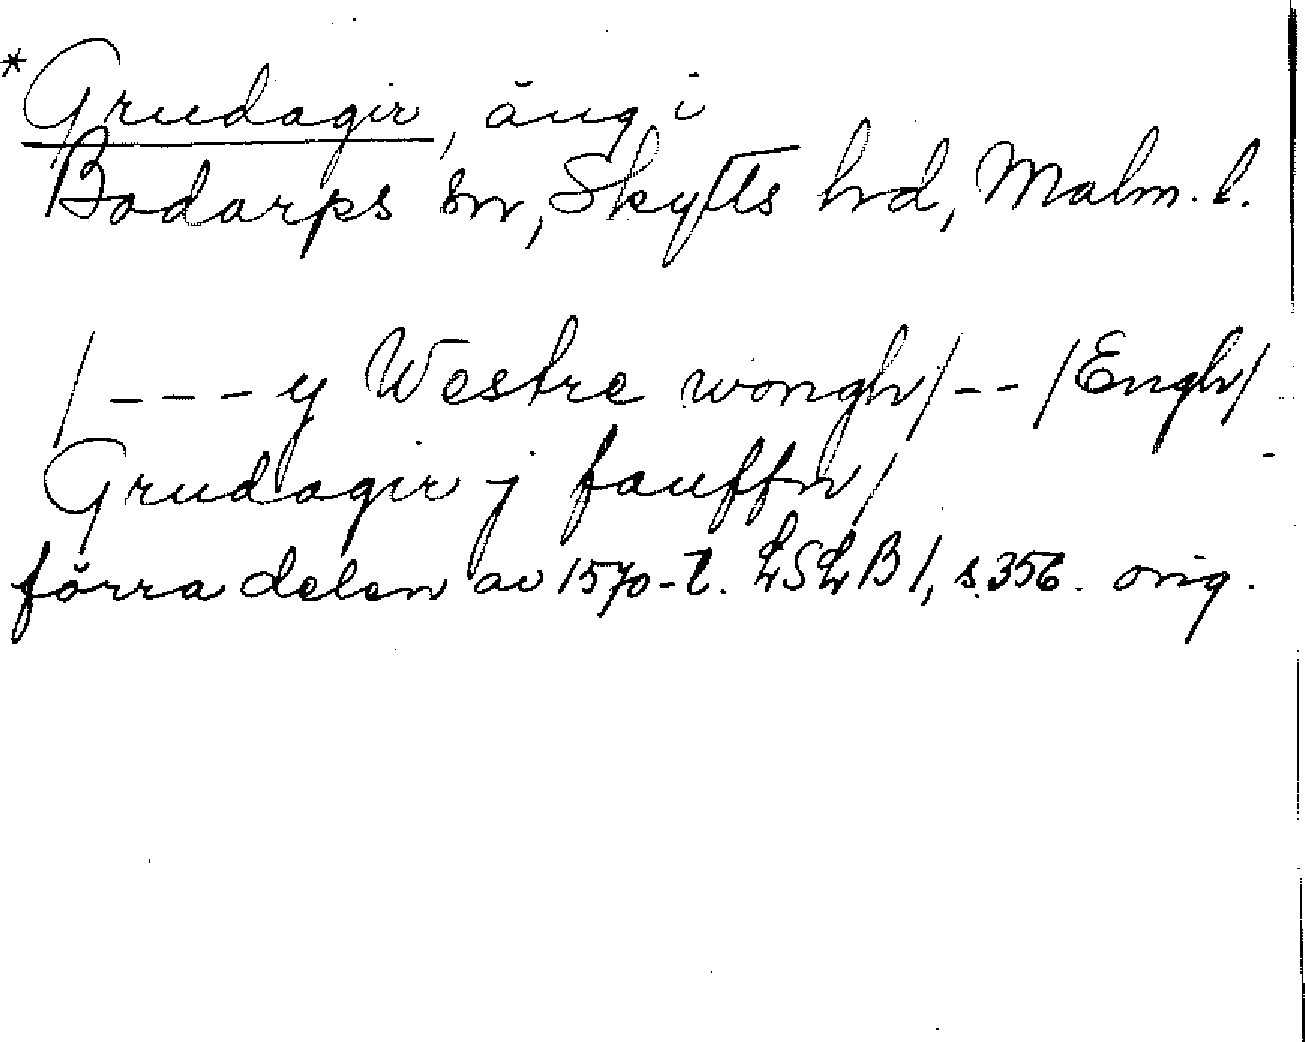 *Grudagir, äng i
Bodarps sn, Skytts hd, Malm. l.
/---y Westre wongh/--/Engh/
Grudagir j fauffn/
förra delen av 1570-t. LSLB 1, s. 356. orig.